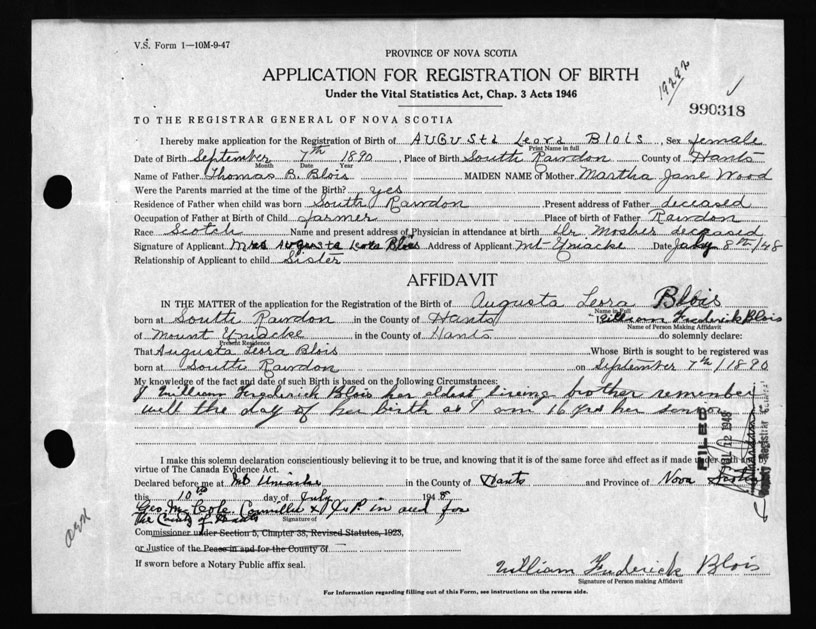 V.S. Form 1—10M-9-47
PROVINCE OF NOVA SCOTIA
APPLICATION FOR REGISTRATION OF BIRTH
Under the Vital Statistics Act, Chap. 3 Acts 1946
19292 ✓
990318
TO THE REGISTRAR GENERAL OF NOVA SCOTIA
I hereby make application for the Registration of Birth of Augusta Leora Blois, Sex female
Print Name in full
Date of Birth September 7th 1890, Place of Birth South Rawdon County of Hants
Month Date Year
Name of Father Thomas B. Blois MAIDEN NAME of Mother Martha Jane Wood
Were the Parents married at the time of the Birth? yes
Residence of Father when child was born South Rawdon Present address of Father deceased
Occupation of Father at Birth of Child farmer Place of birth of Father Rawdon
Race Scotch Name and present address of Physician in attendance at birth Dr Mosher deceased
Signature of Applicant Miss Augusta Leora Blois Address of Applicant Mt Uniacke Date July 8th/48
Relationship of Applicant to child Sister
AFFIDAVIT
IN THE MATTER of the application for the Registration of the Birth of Augusta Leora Blois
Name in Full
born at South Rawdon in the County of Hants I William Frederick Blois
Name of Person Making Affidavit
of Mount Uniacke in the County of Hants do solemnly declare:
Present Residence
That Augusta Leora Blois Whose Birth is sought to be registered was
born at South Rawdon on September 7th/1890
My knowledge of the fact and date of such Birth is based on the following Circumstances:
I William Frederick Blois her eldest liveing brother remember
well the day of her birth as I am 16 yrs her senior
FILED
JUL 12 1948
Deputy Registrar General
I make this solemn declaration conscientiously believing it to be true, and knowing that it is of the same force and effect as if made under oath and by
virtue of The Canada Evidence Act.
Declared before me at Mt Uniacke in the County of Hants and Province of Nova Scotia
this 10th day of July 1948
Geo. McCole. Councillor & J of P in and for
the County of Hants
Signature of
Commissioner under Section 5, Chapter 38, Revised Statutes, 1923,
or Justice of the Peace in and for the County of
If sworn before a Notary Public affix seal.
William Frederick Blois
Signature of Person making Affidavit
For Information regarding filling out of this Form, see instructions on the reverse side.